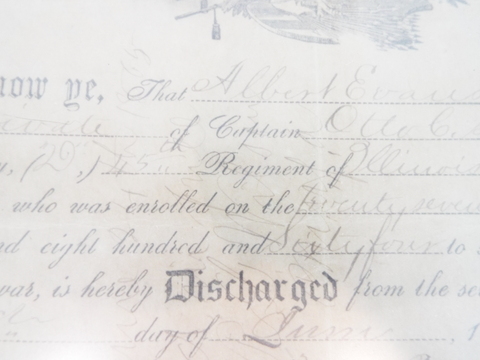 now ye, That Albert Evans
of Captain Otto C.
Regiment of Illinois
who was enrolled on the twenty seven
nd eight hundred and Sixty four to s
war, is hereby Discharged from the se
day of June 1